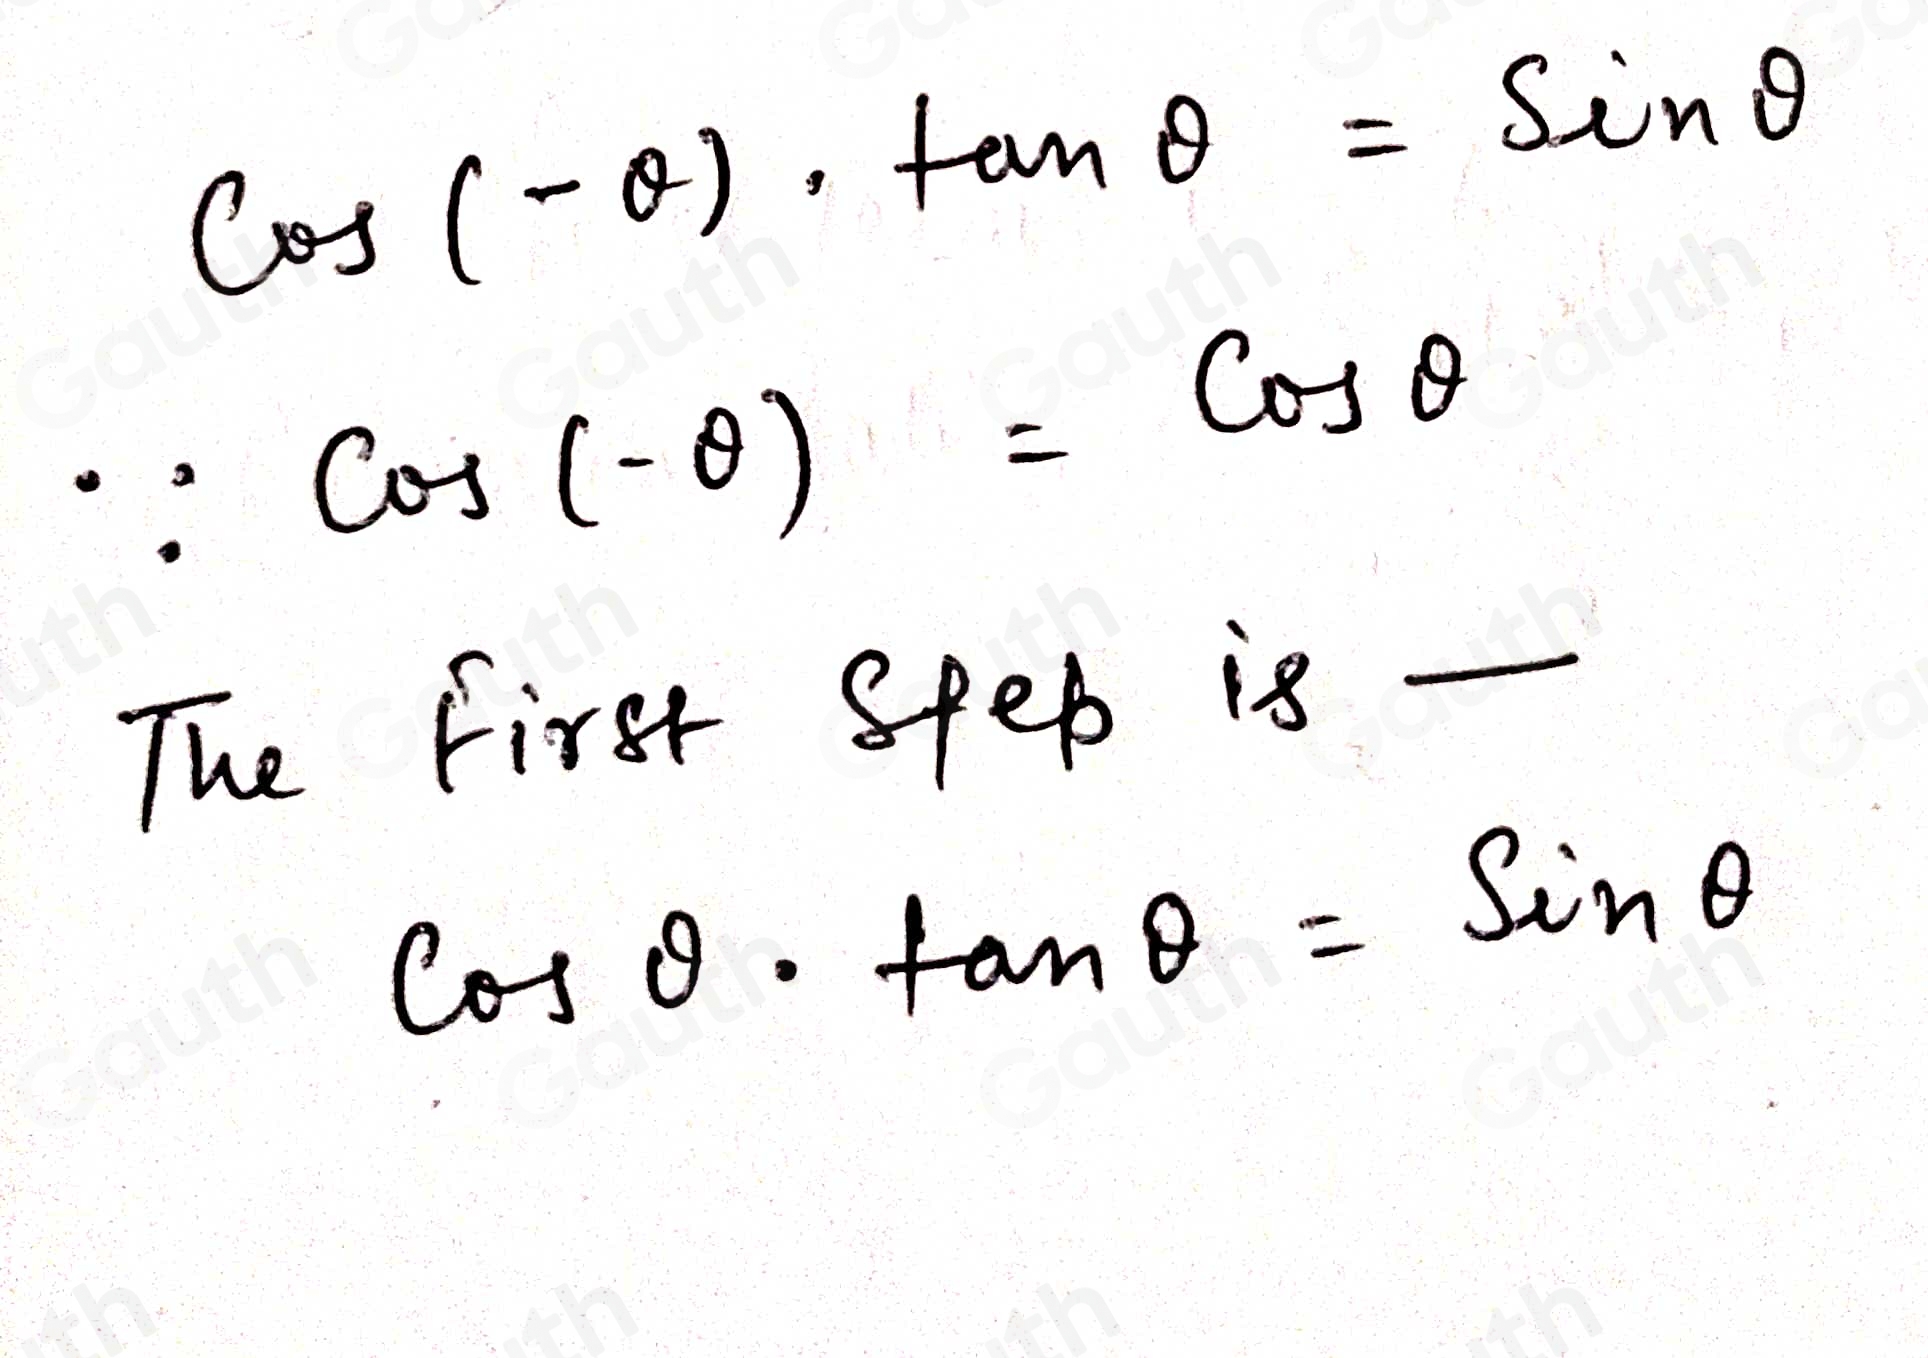 Cos (-θ) . tan θ = Sin θ
∵ Cos (-θ) = Cos θ
The first step is —
Cos θ . tan θ = Sin θ
Gauth